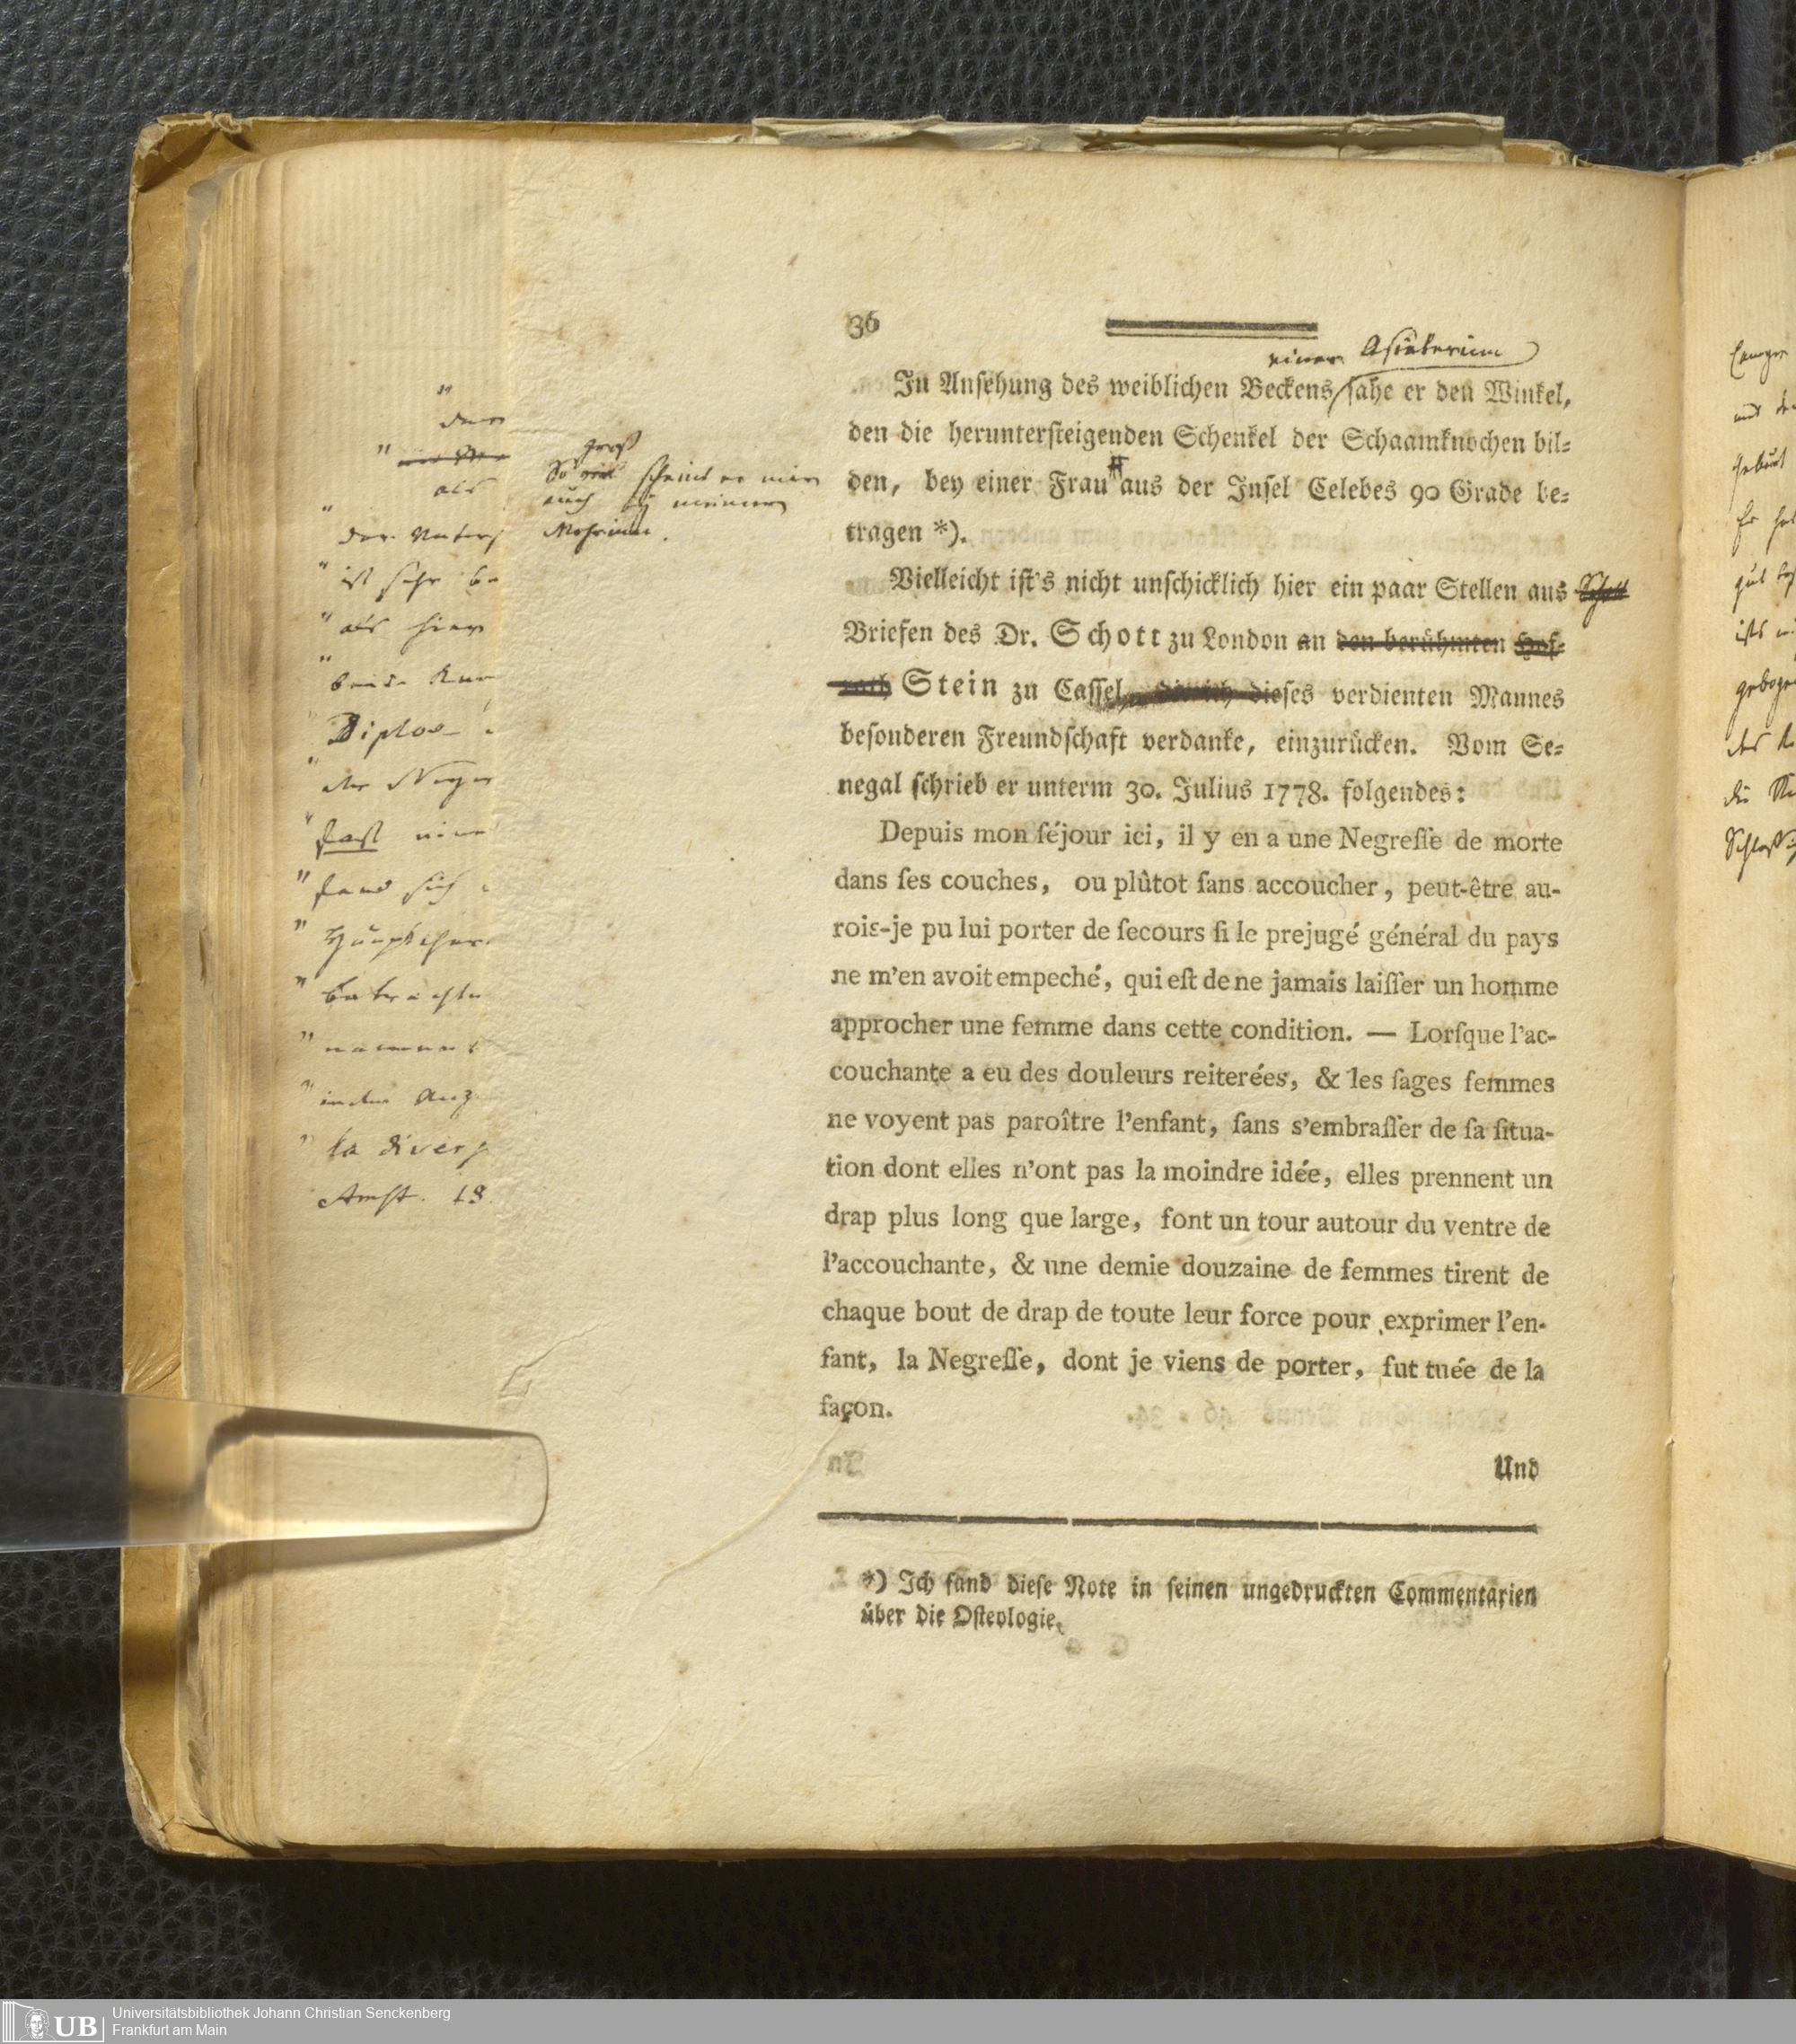 36
einer Asiaterinn
In Ansehung des weiblichen Beckens sahe er den Winkel,
den die heruntersteigenden Schenkel der Schaamknochen bil⸗
den, bey einer Frau # aus der Insel Celebes 90 Grade be⸗
tragen *).
Vielleicht ist's nicht unschicklich hier ein paar Stellen aus
Briefen des Dr. Schott zu London an den berühmten Hof⸗
rath Stein zu Cassel, die ich dieses verdienten Mannes
besonderen Freundschaft verdanke, einzurücken. Vom Se⸗
negal schrieb er unterm 30. Julius 1778. folgendes:
Depuis mon ſéjour ici, il y en a une Negreſſe de morte
dans ſes couches, ou plûtot ſans accoucher, peut-être au-
rois-je pu lui porter de ſecours ſi le prejugé général du pays
ne m'en avoit empeché, qui eſt de ne jamais laiſſer un homme
approcher une femme dans cette condition. — Lorſque l'ac-
couchante a eu des douleurs reiterées, & les ſages femmes
ne voyent pas paroître l'enfant, ſans s'embraſſer de ſa ſitua-
tion dont elles n'ont pas la moindre idée, elles prennent un
drap plus long que large, font un tour autour du ventre de
l'accouchante, & une demie douzaine de femmes tirent de
chaque bout de drap de toute leur force pour exprimer l'en-
fant, la Negreſſe, dont je viens de porter, fut tuée de la
façon.
Und
*) Ich fand diese Note in seinen ungedruckten Commentarien
über die Osteologie.
groß
So scheint er mir
auch zu meiner
Mohrinn.
"
" als
" der Unters
" ist sehr be
" als hier
" beide
Diploe
" der Neger
" fast eine
" fand sich
" Hauptcher
" betrachte
"
" in den Anz
" la divers
Amst. 18
UB
Universitätsbibliothek Johann Christian Senckenberg
Frankfurt am Main